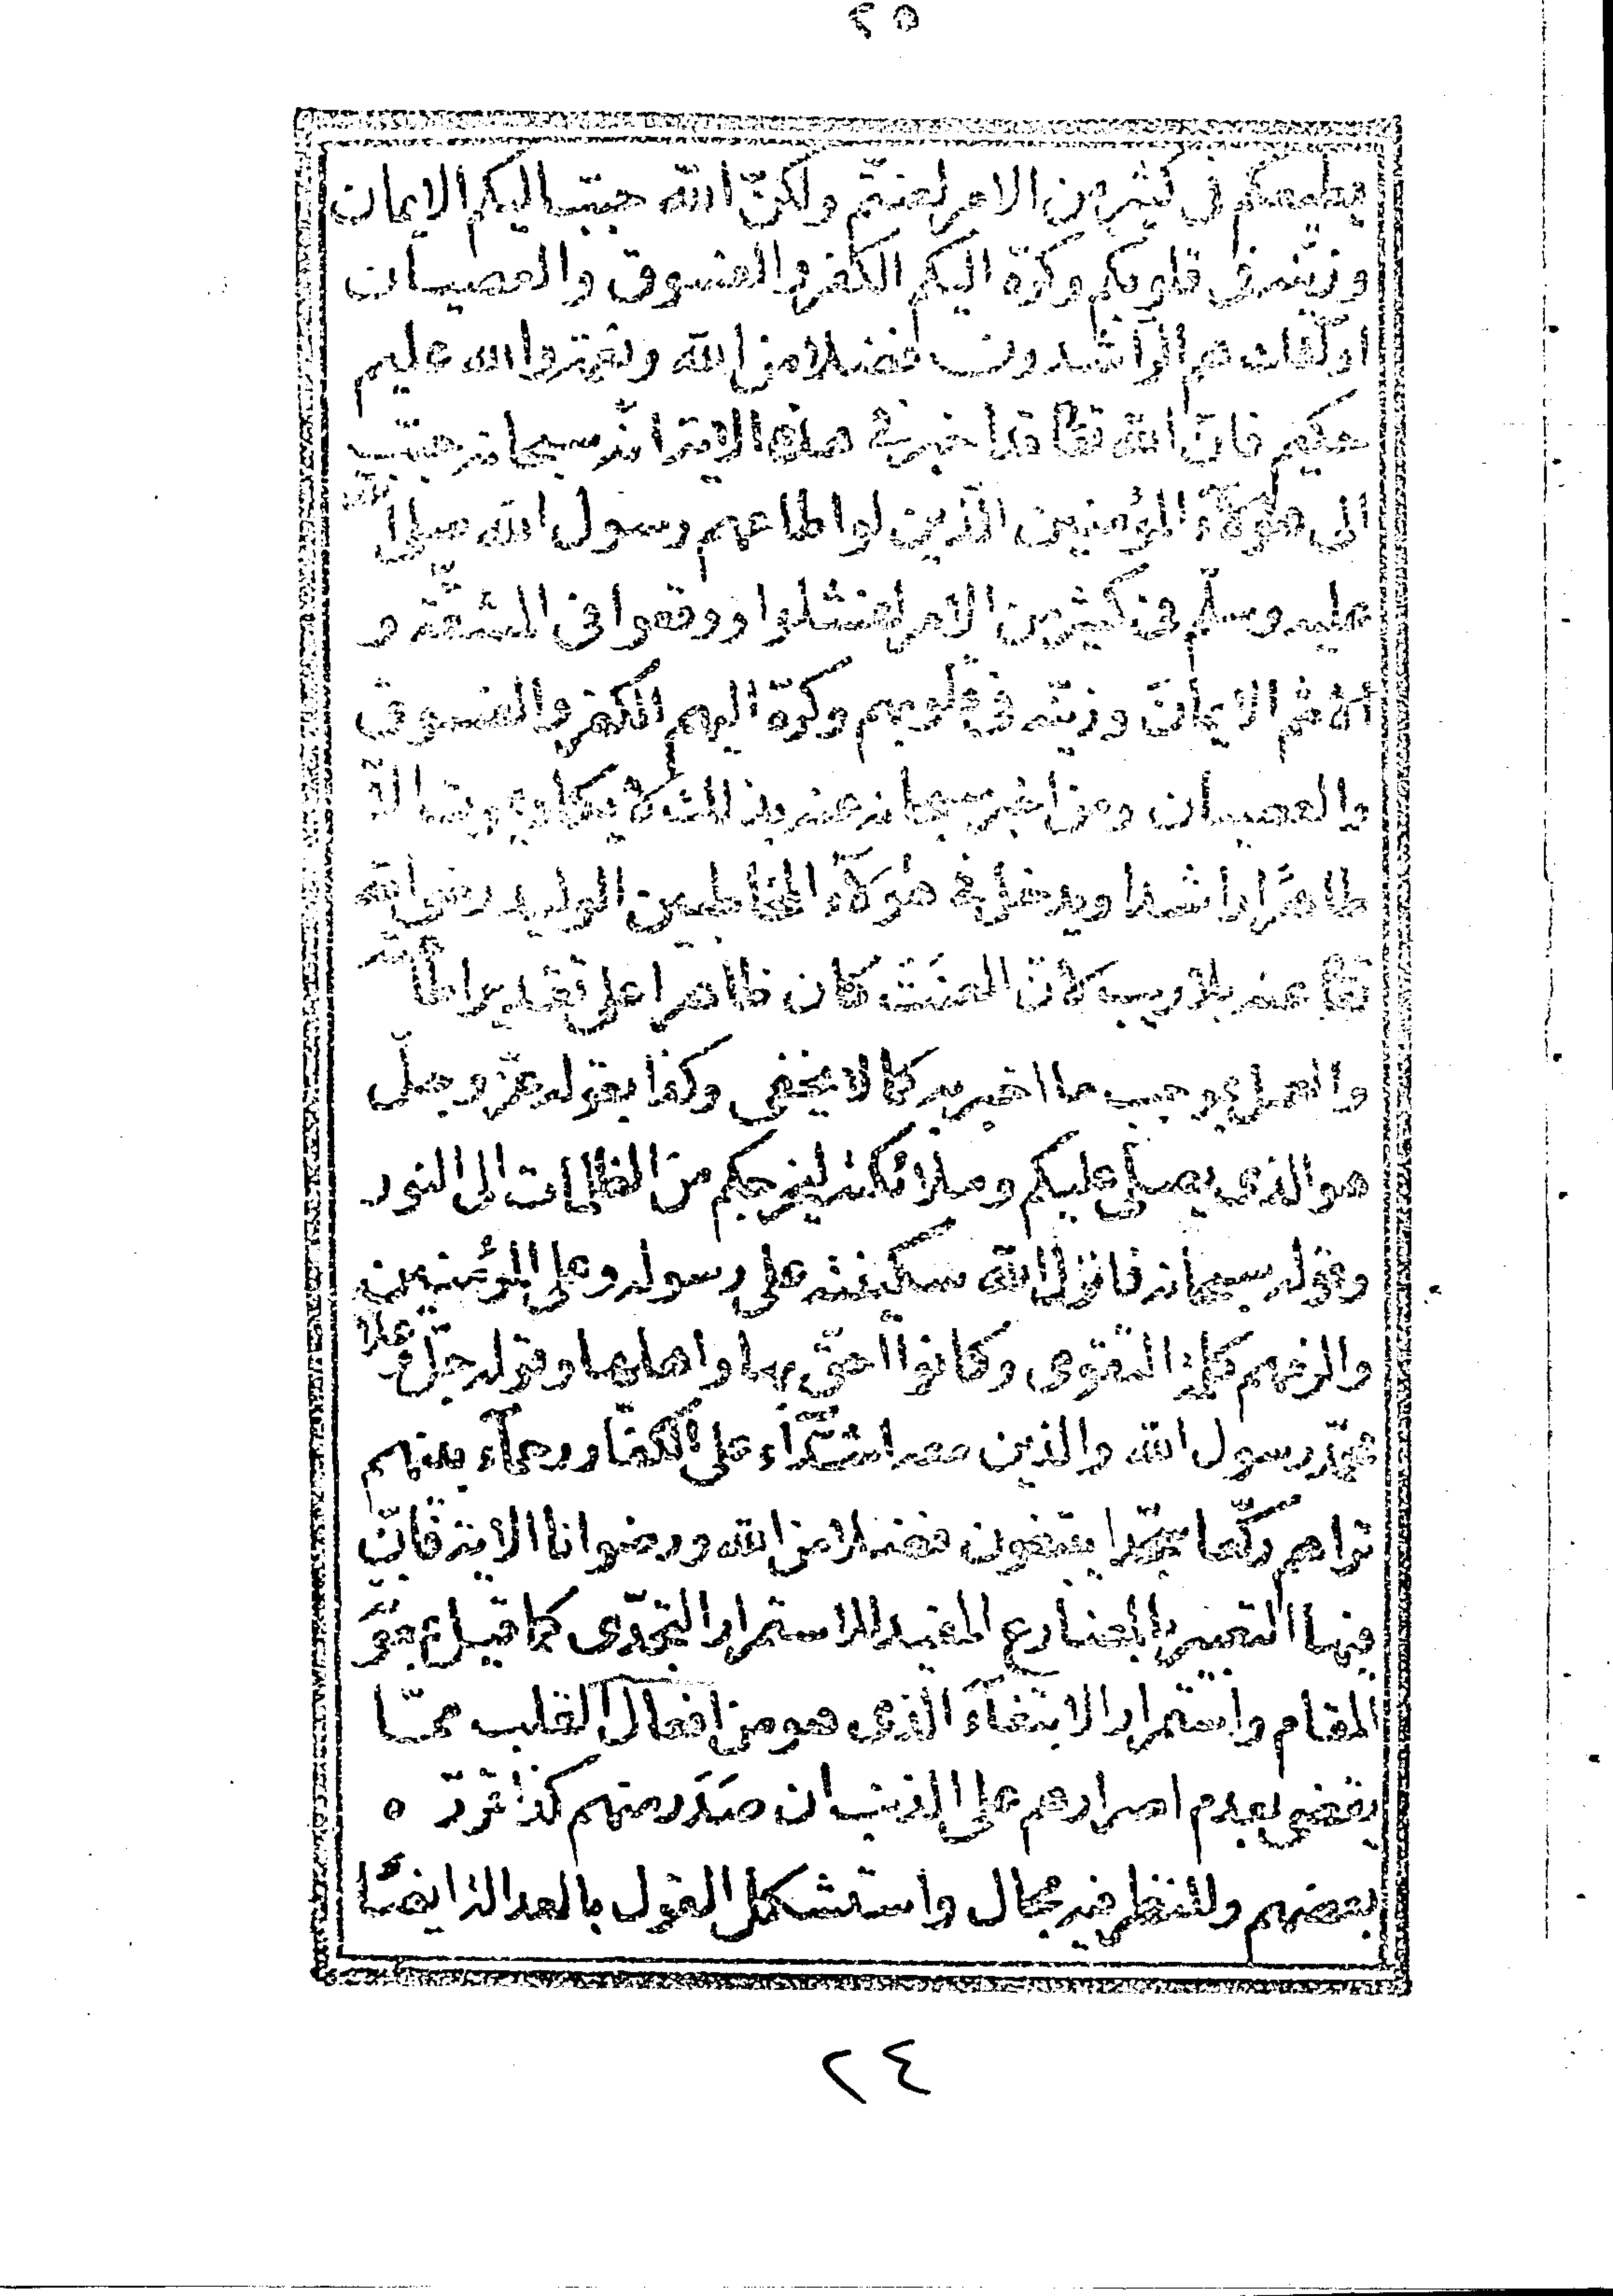 ٢٥
يطيعكم فى كثير من الامر لعنتم ولكنّ الله حبّب اليكم الايمان
وزيّنه فى قلوبكم وكرّه اليكم الكفر والفسوق والعصيان
اولئك هم الرّاشدون فضلا من الله ونعمة والله عليم
حكيم فانّ الله تعا قد اخبر فى هذه الاية انّه سبحانه حبّب
الى هؤلآء المؤمنين الّذين لو اطاعهم رسول الله صلى الله
عليه وسلّم فى كثير من الامر لفشلوا ووقعوا فى المشقّة و
الايمان وزيّنه فى قلوبهم وكرّه اليهم الكفر والفسوق
والعصيان ومن اخبر سبحانه عنه بذلك لا يكاد
ظاهرا راشدا ويدخل فى هؤلآء المخاطبين الوليد رضى الله
تعا عنه بلا ريب لانّ العنت كان ظاهرا على تقدير اطاعته
والعمل بموجب ما اخبر به كما لا يخفى وكذا بقوله عزّ وجلّ
هو الذى يصلى عليكم وملائكته ليخرجكم من الظلمات الى النور
وقوله سبحانه فانزل الله سكينته على رسوله وعلى المؤمنين
والزمهم كلمة التقوى وكانوا احقّ بها واهلها وقوله جلّ وعلا
محمّد رسول الله والذين معه اشدّآء على الكفّار رحمآء بينهم
تراهم ركّعا سجّدا يبتغون فضلا من الله ورضوانا الاية فانّ
فيها التعبير بالمضارع المفيد للاستمرار التجدّدى كما قيل بمعونة
المقام واستمرار الابتغآء الّذى هو من افعال القلب ممّا
يقضى بعدم اصرارهم على الذنب ان صَدَر منهم كذا قرّره
بعضهم وللنظر فيه مجال واستشكل القول بالعدالة ايضًا
٢٤